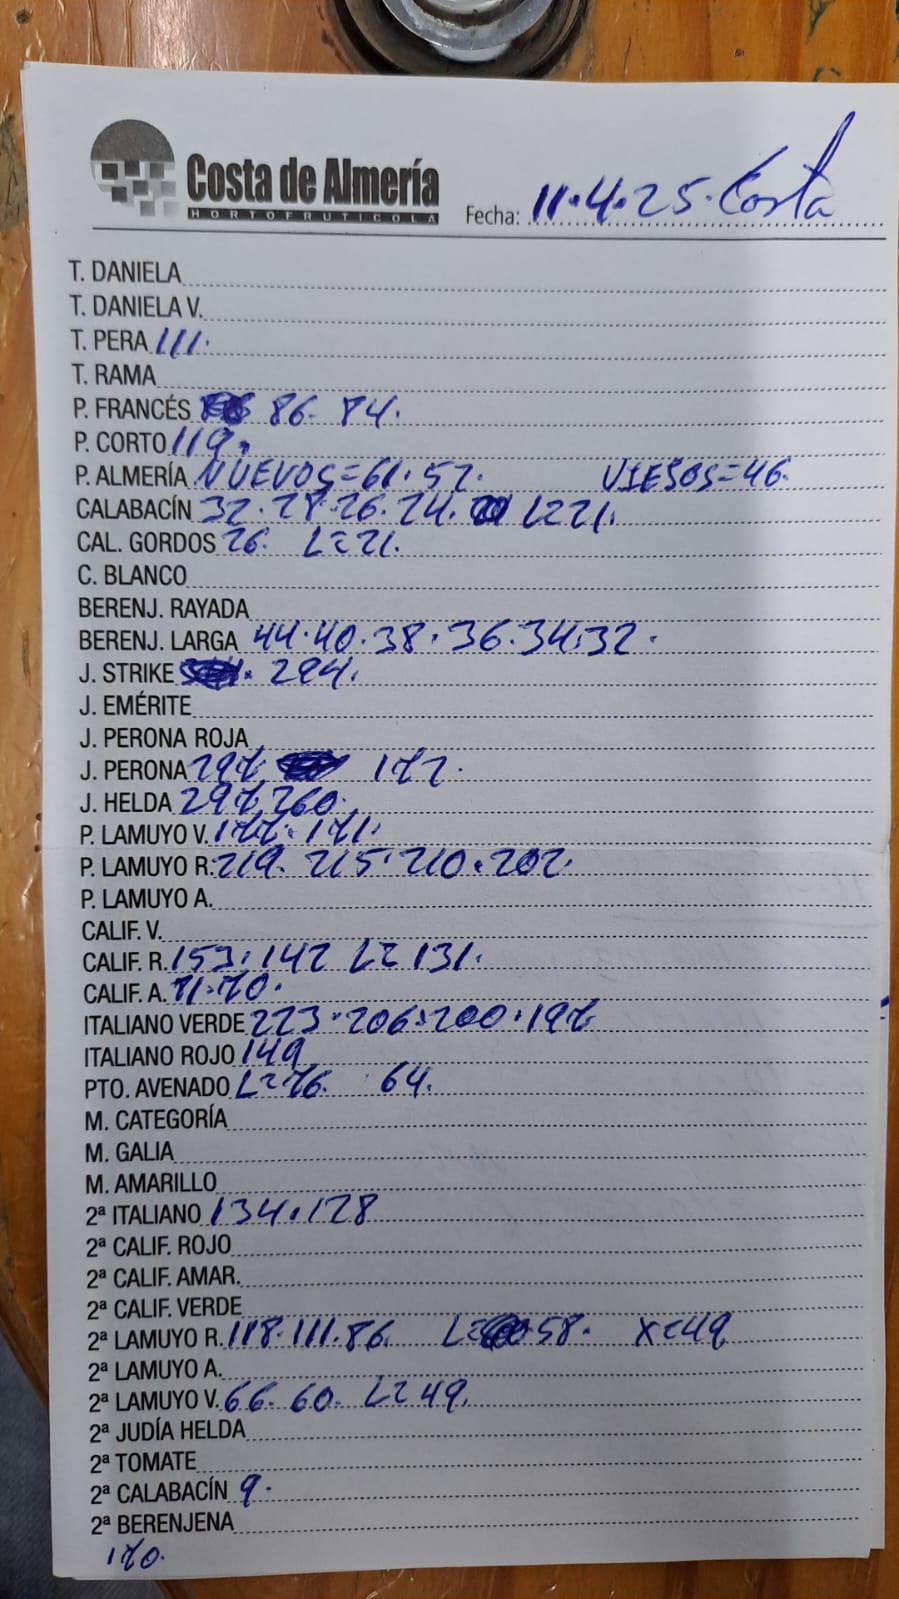 Costa de Almería
HORTOFRUTICOLA
Fecha: 11.4.25. Costa
T. DANIELA
T. DANIELA V.
T. PERA 111.
T. RAMA
P. FRANCÉS 86. 84.
P. CORTO 119.
P. ALMERÍA NUEVOS=61.52. VIESOS=46.
CALABACÍN 32.28.26.24. L=21.
CAL. GORDOS 26. L=21.
C. BLANCO
BERENJ. RAYADA
BERENJ. LARGA 44.40.38.36.34.32.
J. STRIKE 294.
J. EMÉRITE
J. PERONA ROJA
J. PERONA 297 172.
J. HELDA 297.260.
P. LAMUYO V. 177.171.
P. LAMUYO R. 219. 215. 210.202.
P. LAMUYO A.
CALIF. V.
CALIF. R. 153.142 L=131.
CALIF. A. 71.70.
ITALIANO VERDE 223.206.200.197
ITALIANO ROJO 149
PTO. AVENADO L=76. 64.
M. CATEGORÍA
M. GALIA
M. AMARILLO
2ª ITALIANO 134.128
2ª CALIF. ROJO
2ª CALIF. AMAR.
2ª CALIF. VERDE
2ª LAMUYO R. 118.111.86. L=58. X=49
2ª LAMUYO A.
2ª LAMUYO V. 66.60. L=49.
2ª JUDÍA HELDA
2ª TOMATE
2ª CALABACÍN 9.
2ª BERENJENA
170.